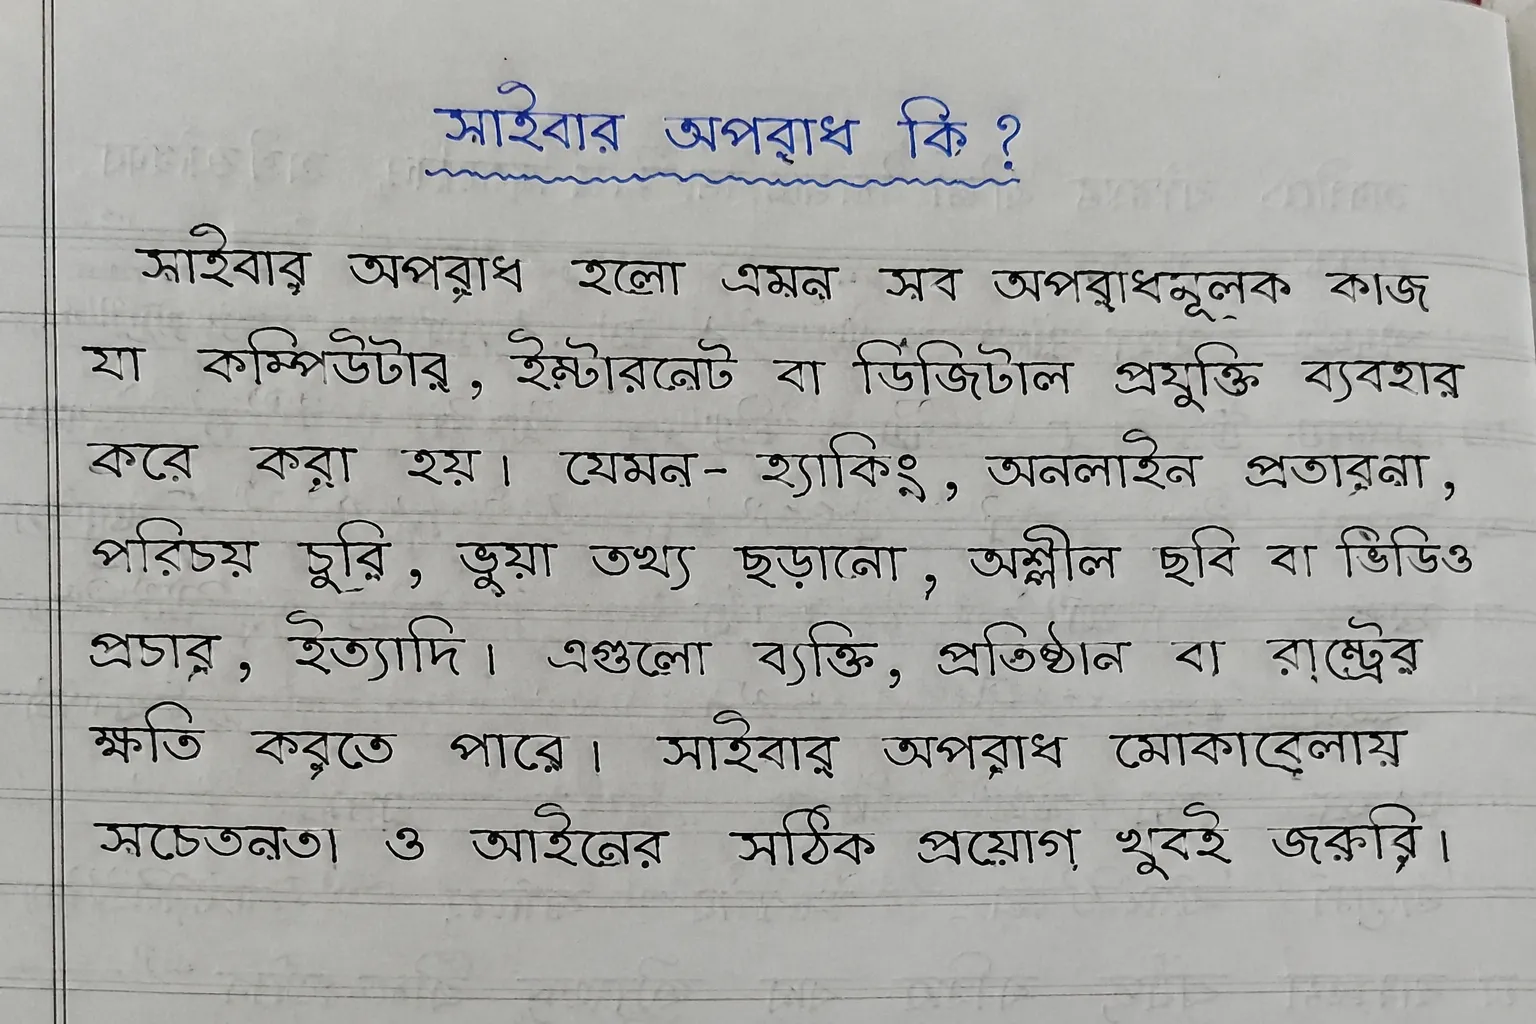 সাইবার অপরাধ কি ?
সাইবার অপরাধ হলো এমন সব অপরাধমূলক কাজ
যা কম্পিউটার, ইন্টারনেট বা ডিজিটাল প্রযুক্তি ব্যবহার
করে করা হয়। যেমন- হ্যাকিং, অনলাইন প্রতারনা,
পরিচয় চুরি, ভুয়া তথ্য ছড়ানো, অশ্লীল ছবি বা ভিডিও
প্রচার, ইত্যাদি। এগুলো ব্যক্তি, প্রতিষ্ঠান বা রাষ্ট্রের
ক্ষতি করতে পারে। সাইবার অপরাধ মোকাবেলায়
সচেতনতা ও আইনের সঠিক প্রয়োগ খুবই জরুরি।